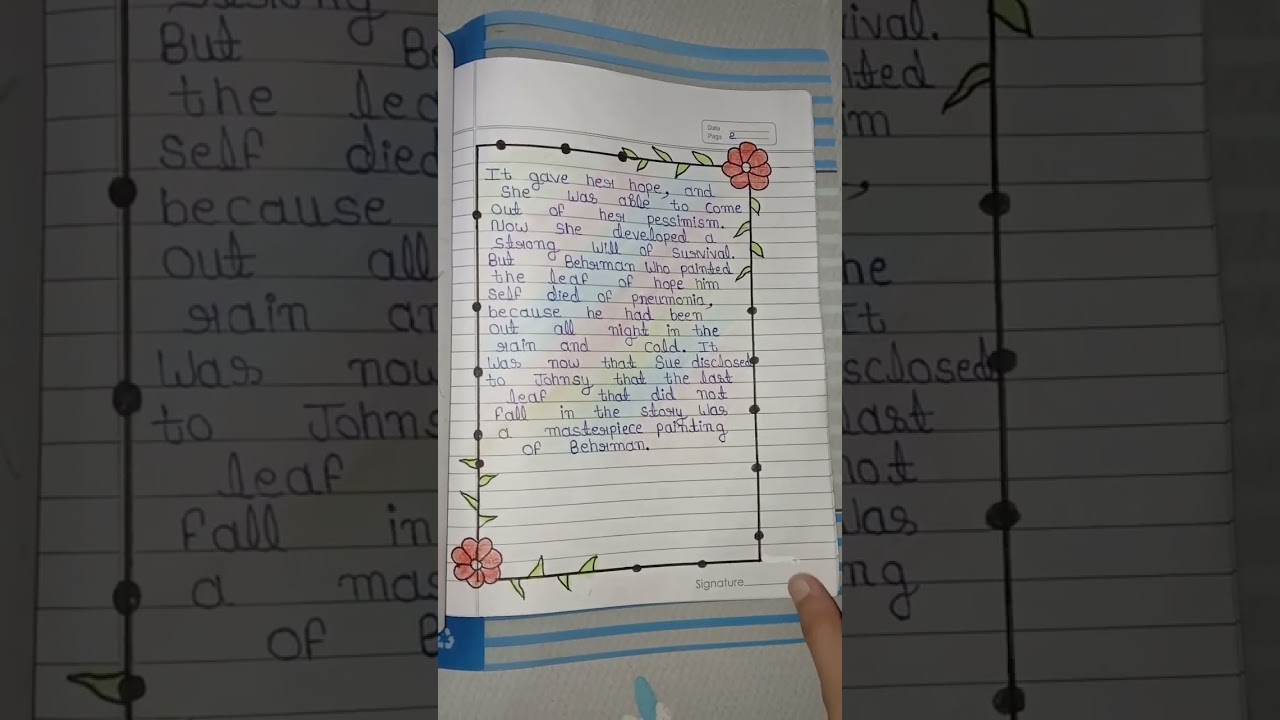 Date
Page 2
It gave her hope, and
She was able to come
out of her pessimism.
Now she developed a
strong will of survival.
But Behrman who painted
the leaf of hope him
self died of pneumonia,
because he had been
out all night in the
rain and cold. It
was now that Sue disclosed
to Johnsy that the last
leaf that did not
fall in the story was
a masterpiece painting
of Behrman.
Signature